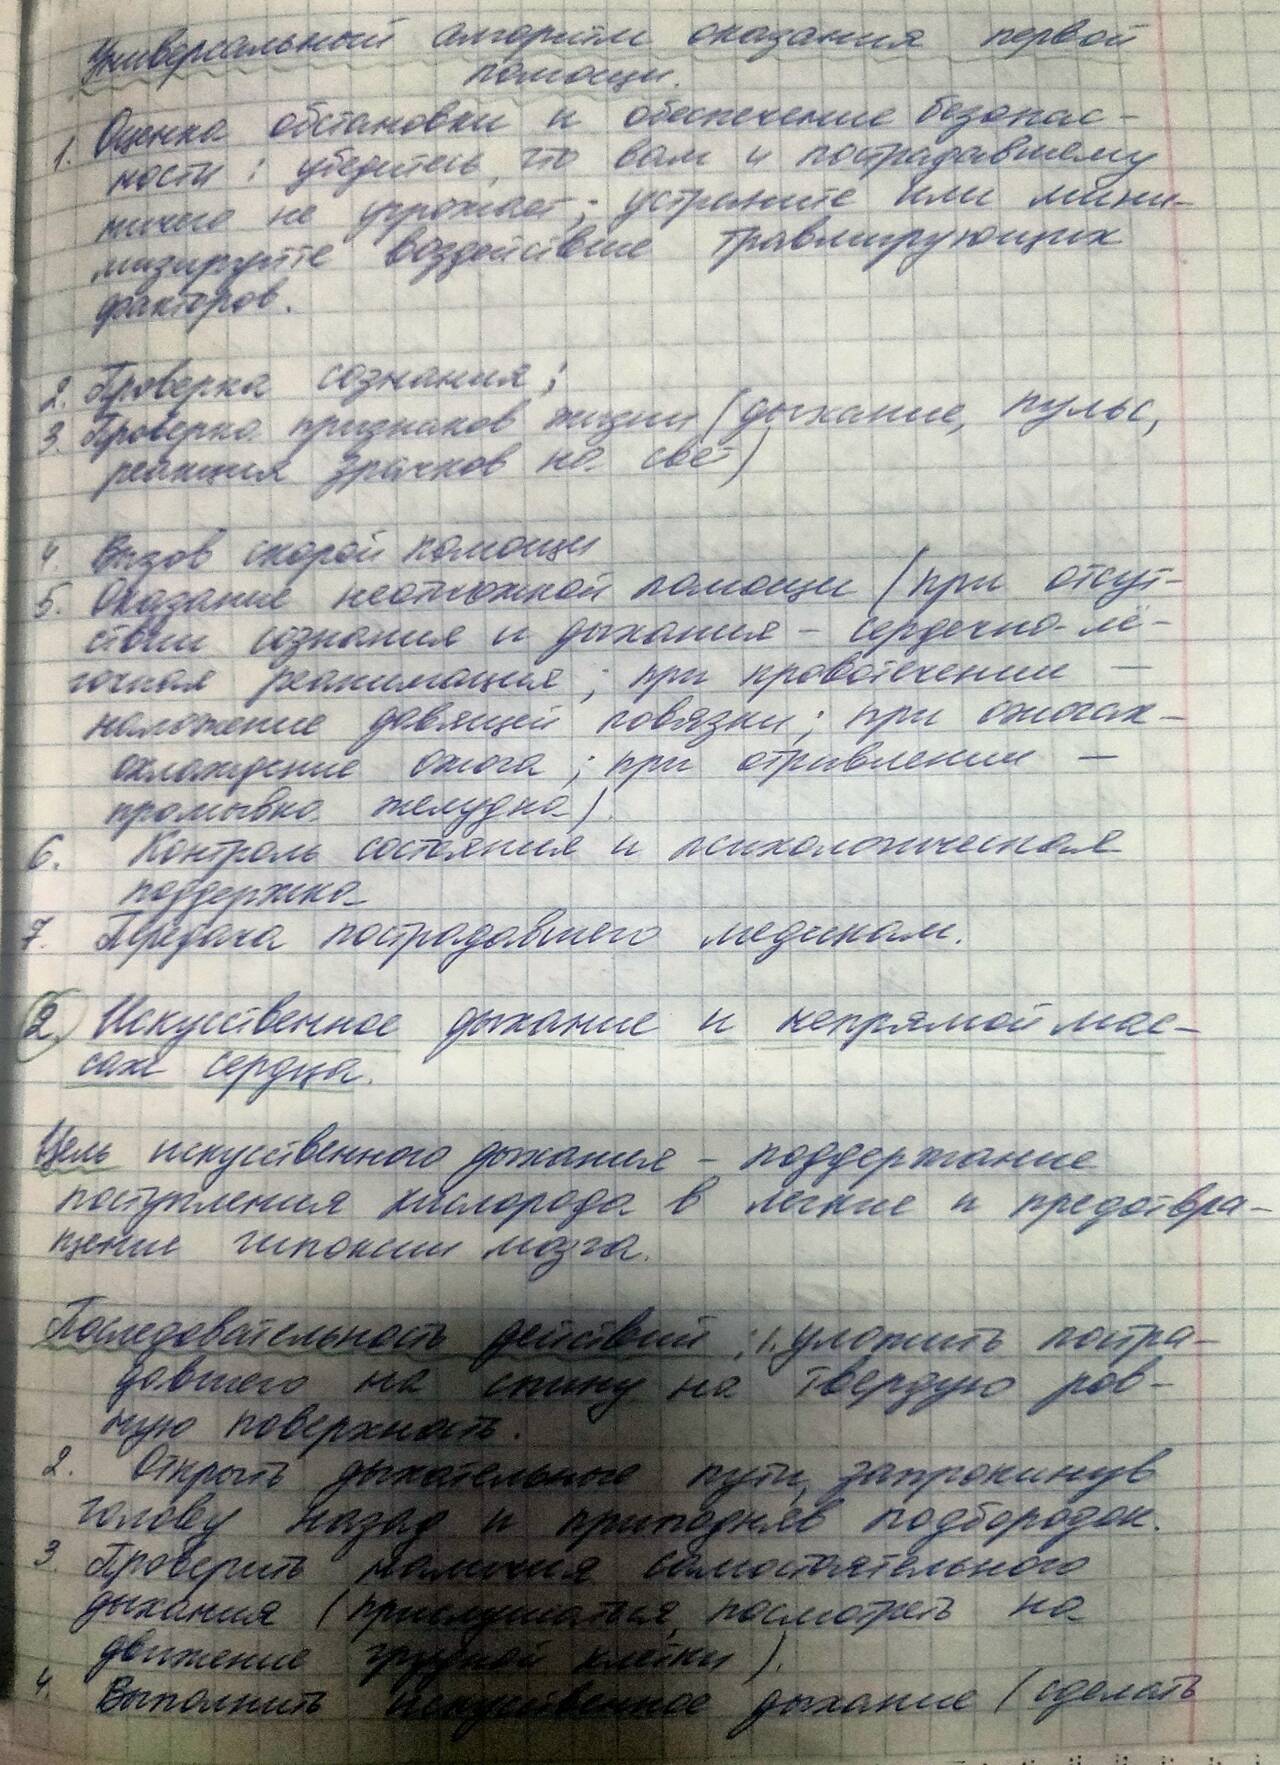 Универсальный алгоритм оказания первой
помощи.
1. Оценка обстановки и обеспечение безопас-
ности: убедитесь, что вам и пострадавшему
ничего не угрожает; устраните или мини-
мизируйте воздействие травмирующих
факторов.
2. Проверка сознания;
3. Проверка признаков жизни (дыхание, пульс,
реакция зрачков на свет)
4. Вызов скорой помощи
5. Оказание неотложной помощи (при отсут-
ствии сознания и дыхания – сердечно-лё-
гочная реанимация; при кровотечении –
наложение давящей повязки; при ожогах –
охлаждение ожога; при отравлении –
промывка желудка).
6. Контроль состояния и психологическая
поддержка
7. Передача пострадавшего медикам.
2. Искуственное дыхание и непрямой мас-
саж сердца.
Цель искусственного дыхания – поддержание
поступления кислорода в легкие и предотвра-
щение гипоксии мозга.
Последовательность действий: 1. уложить постра-
давшего на спину на твердую ров-
ную поверхность.
2. Открыть дыхательные пути, запрокинув
голову назад и приподняв подбородок.
3. Проверить наличия самостоятельного
дыхания (прислушаться, посмотреть на
движение грудной клетки).
4. Выполнить искусственное дыхание (сделать